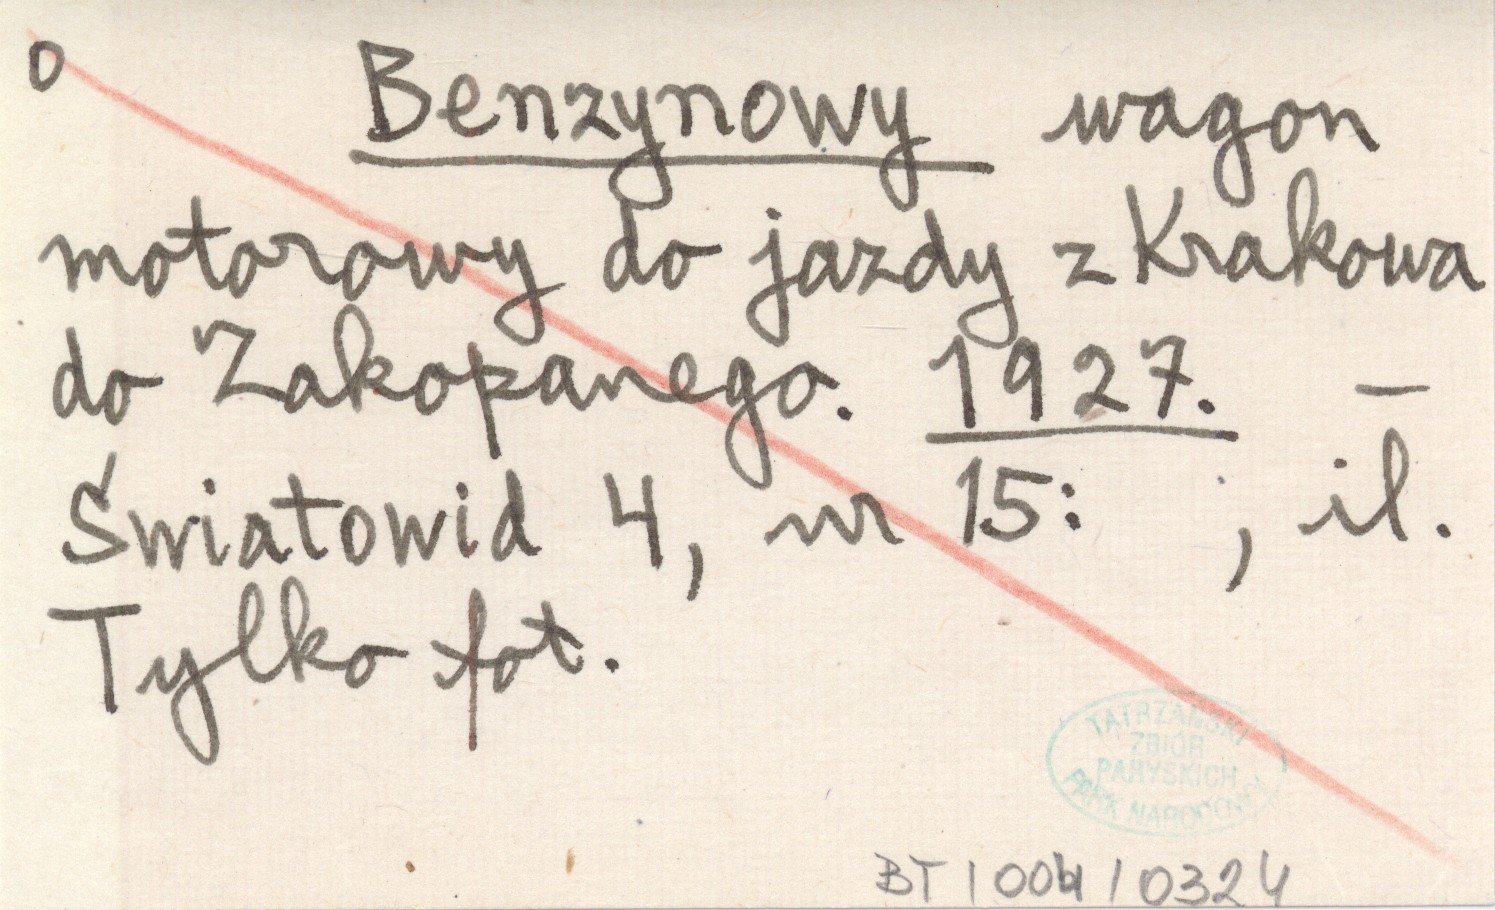 0 Benzynowy wagon
motorowy do jazdy z Krakowa
do Zakopanego. 1927. —
Światowid 4, nr 15: , il.
Tylko fot.
TATRZAŃSKI
ZBIÓR
PARYSKICH
PARK NARODOWY
BT | 004 | 0324